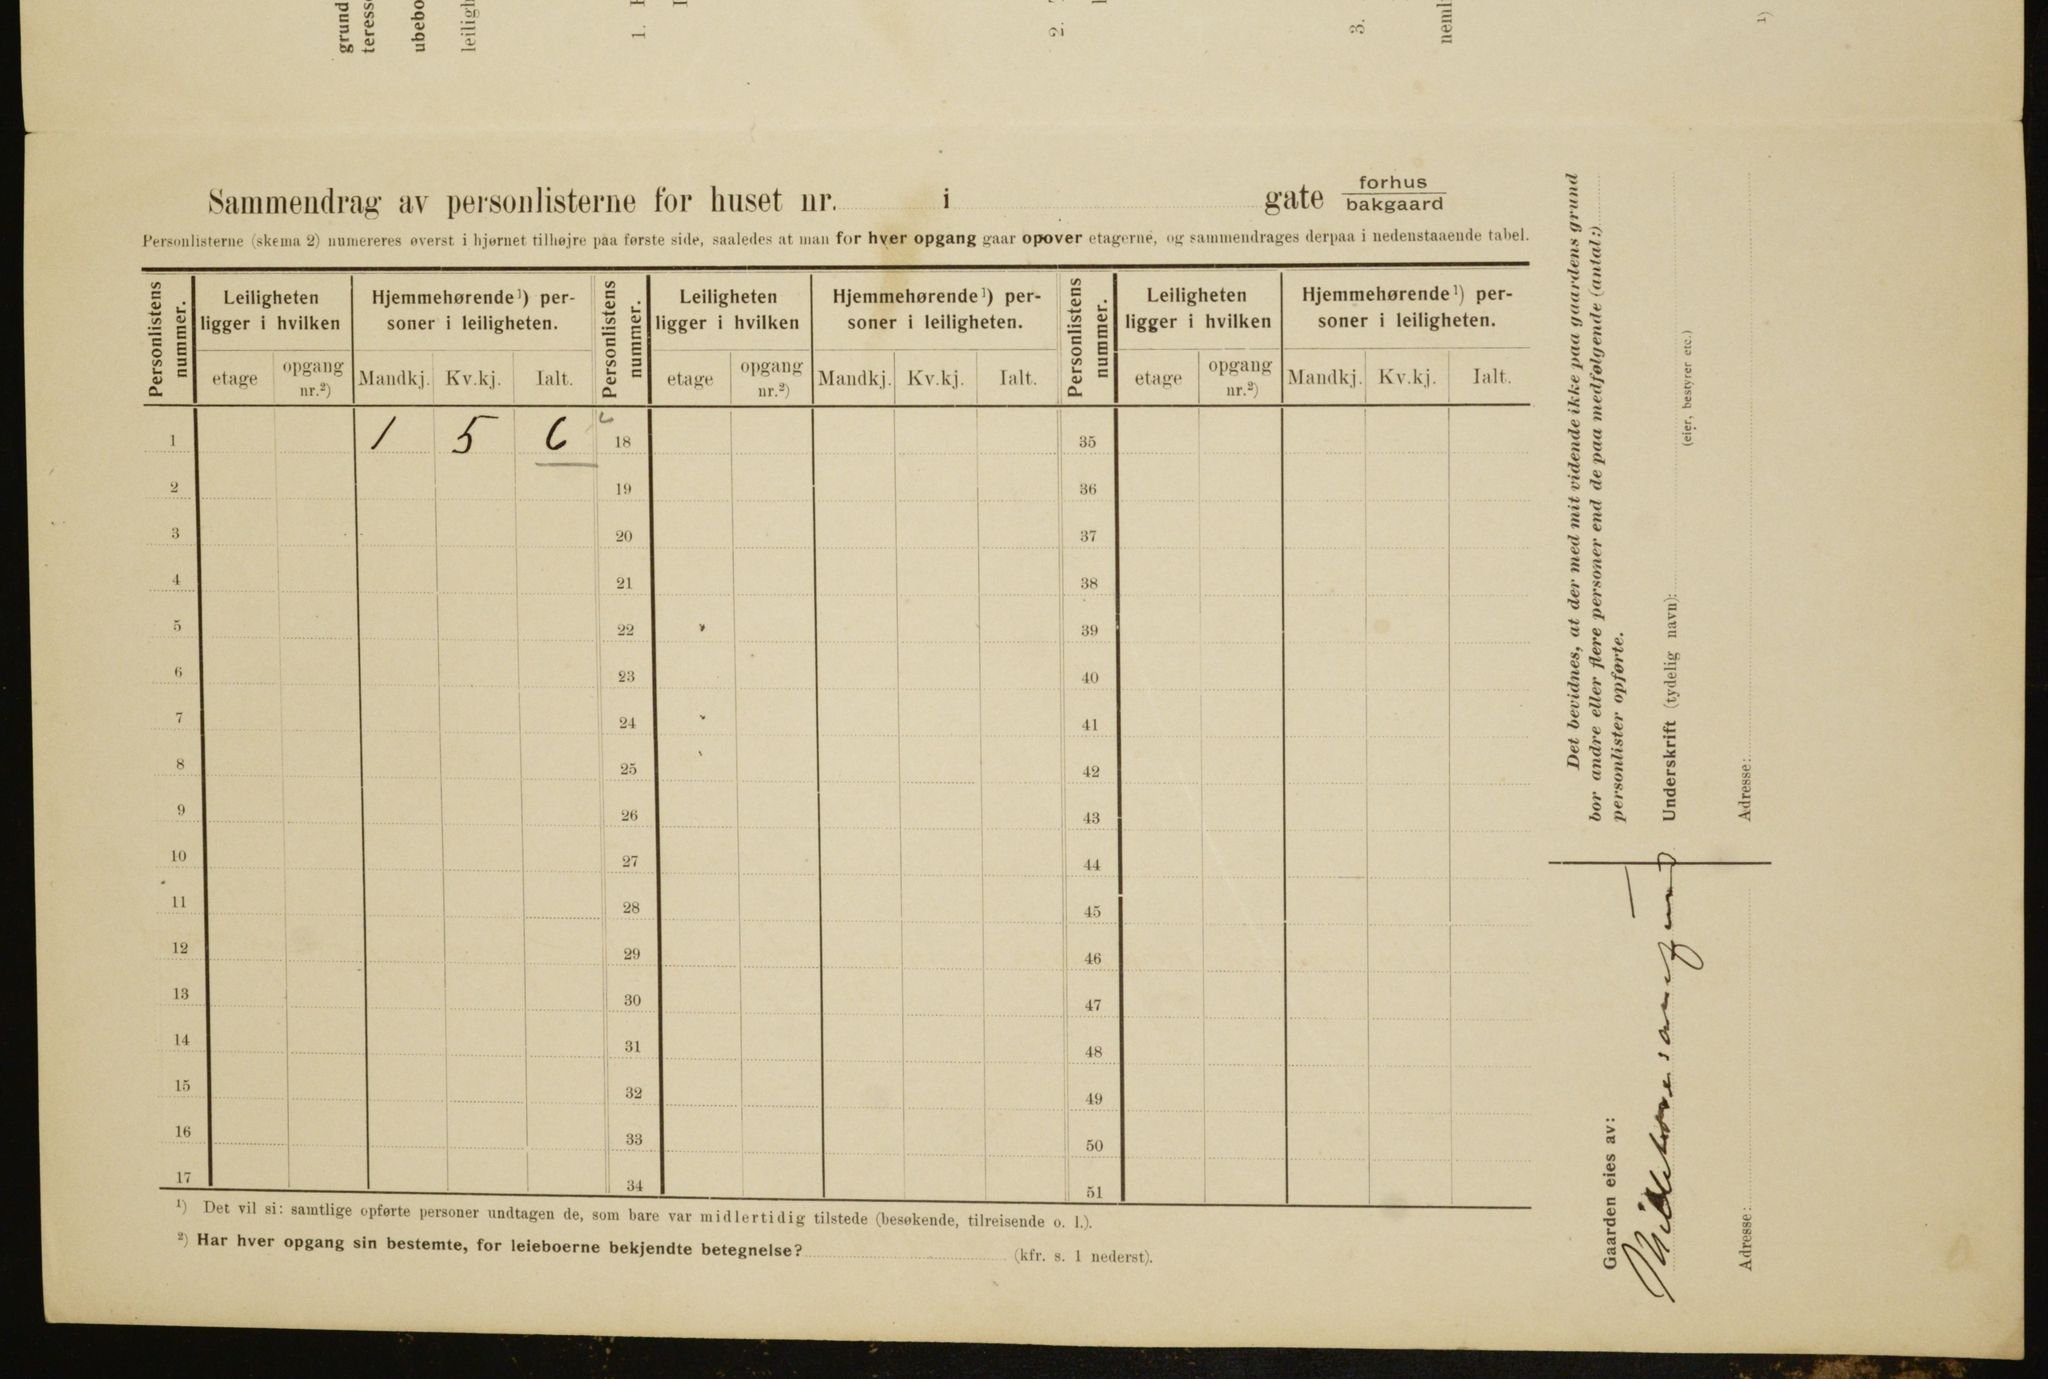 grund
teress
ubebo
leiligh
1.
2.
3.
neml
1)
Sammendrag av personlisterne for huset nr. i gate forhus
bakgaard
Personlisterne (skema 2) numereres øverst i hjørnet tilhøjre paa første side, saaledes at man for hver opgang gaar opover etagerne, og sammendrages derpaa i nedenstaaende tabel.
Personlistens nummer. Leiligheten ligger i hvilken Hjemmehørende 1) personer i leiligheten. Personlistens nummer. Leiligheten ligger i hvilken Hjemmehørende 1) personer i leiligheten. Personlistens nummer. Leiligheten ligger i hvilken Hjemmehørende 1) personer i leiligheten.
etage opgang nr.2) Mandkj. Kv.kj. Ialt. etage opgang nr.2) Mandkj. Kv.kj. Ialt. etage opgang nr.2) Mandkj. Kv.kj. Ialt.
1 1 5 6 18 35
2 19 36
3 20 37
4 21 38
5 22 39
6 23 40
7 24 41
8 25 42
9 26 43
10 27 44
11 28 45
12 29 46
13 30 47
14 31 48
15 32 49
16 33 50
17 34 51
1) Det vil si: samtlige opførte personer undtagen de, som bare var midlertidig tilstede (besøkende, tilreisende o. l.).
2) Har hver opgang sin bestemte, for leieboerne bekjendte betegnelse? (kfr. s. 1 nederst).
Det bevidnes, at der med mit vidende ikke paa gaardens grund
bor andre eller flere personer end de paa medfølgende (antal:)
personlister opførte.
Underskrift (tydelig navn):
(eier, bestyrer etc.)
Adresse:
Gaarden eies av:
Adresse: